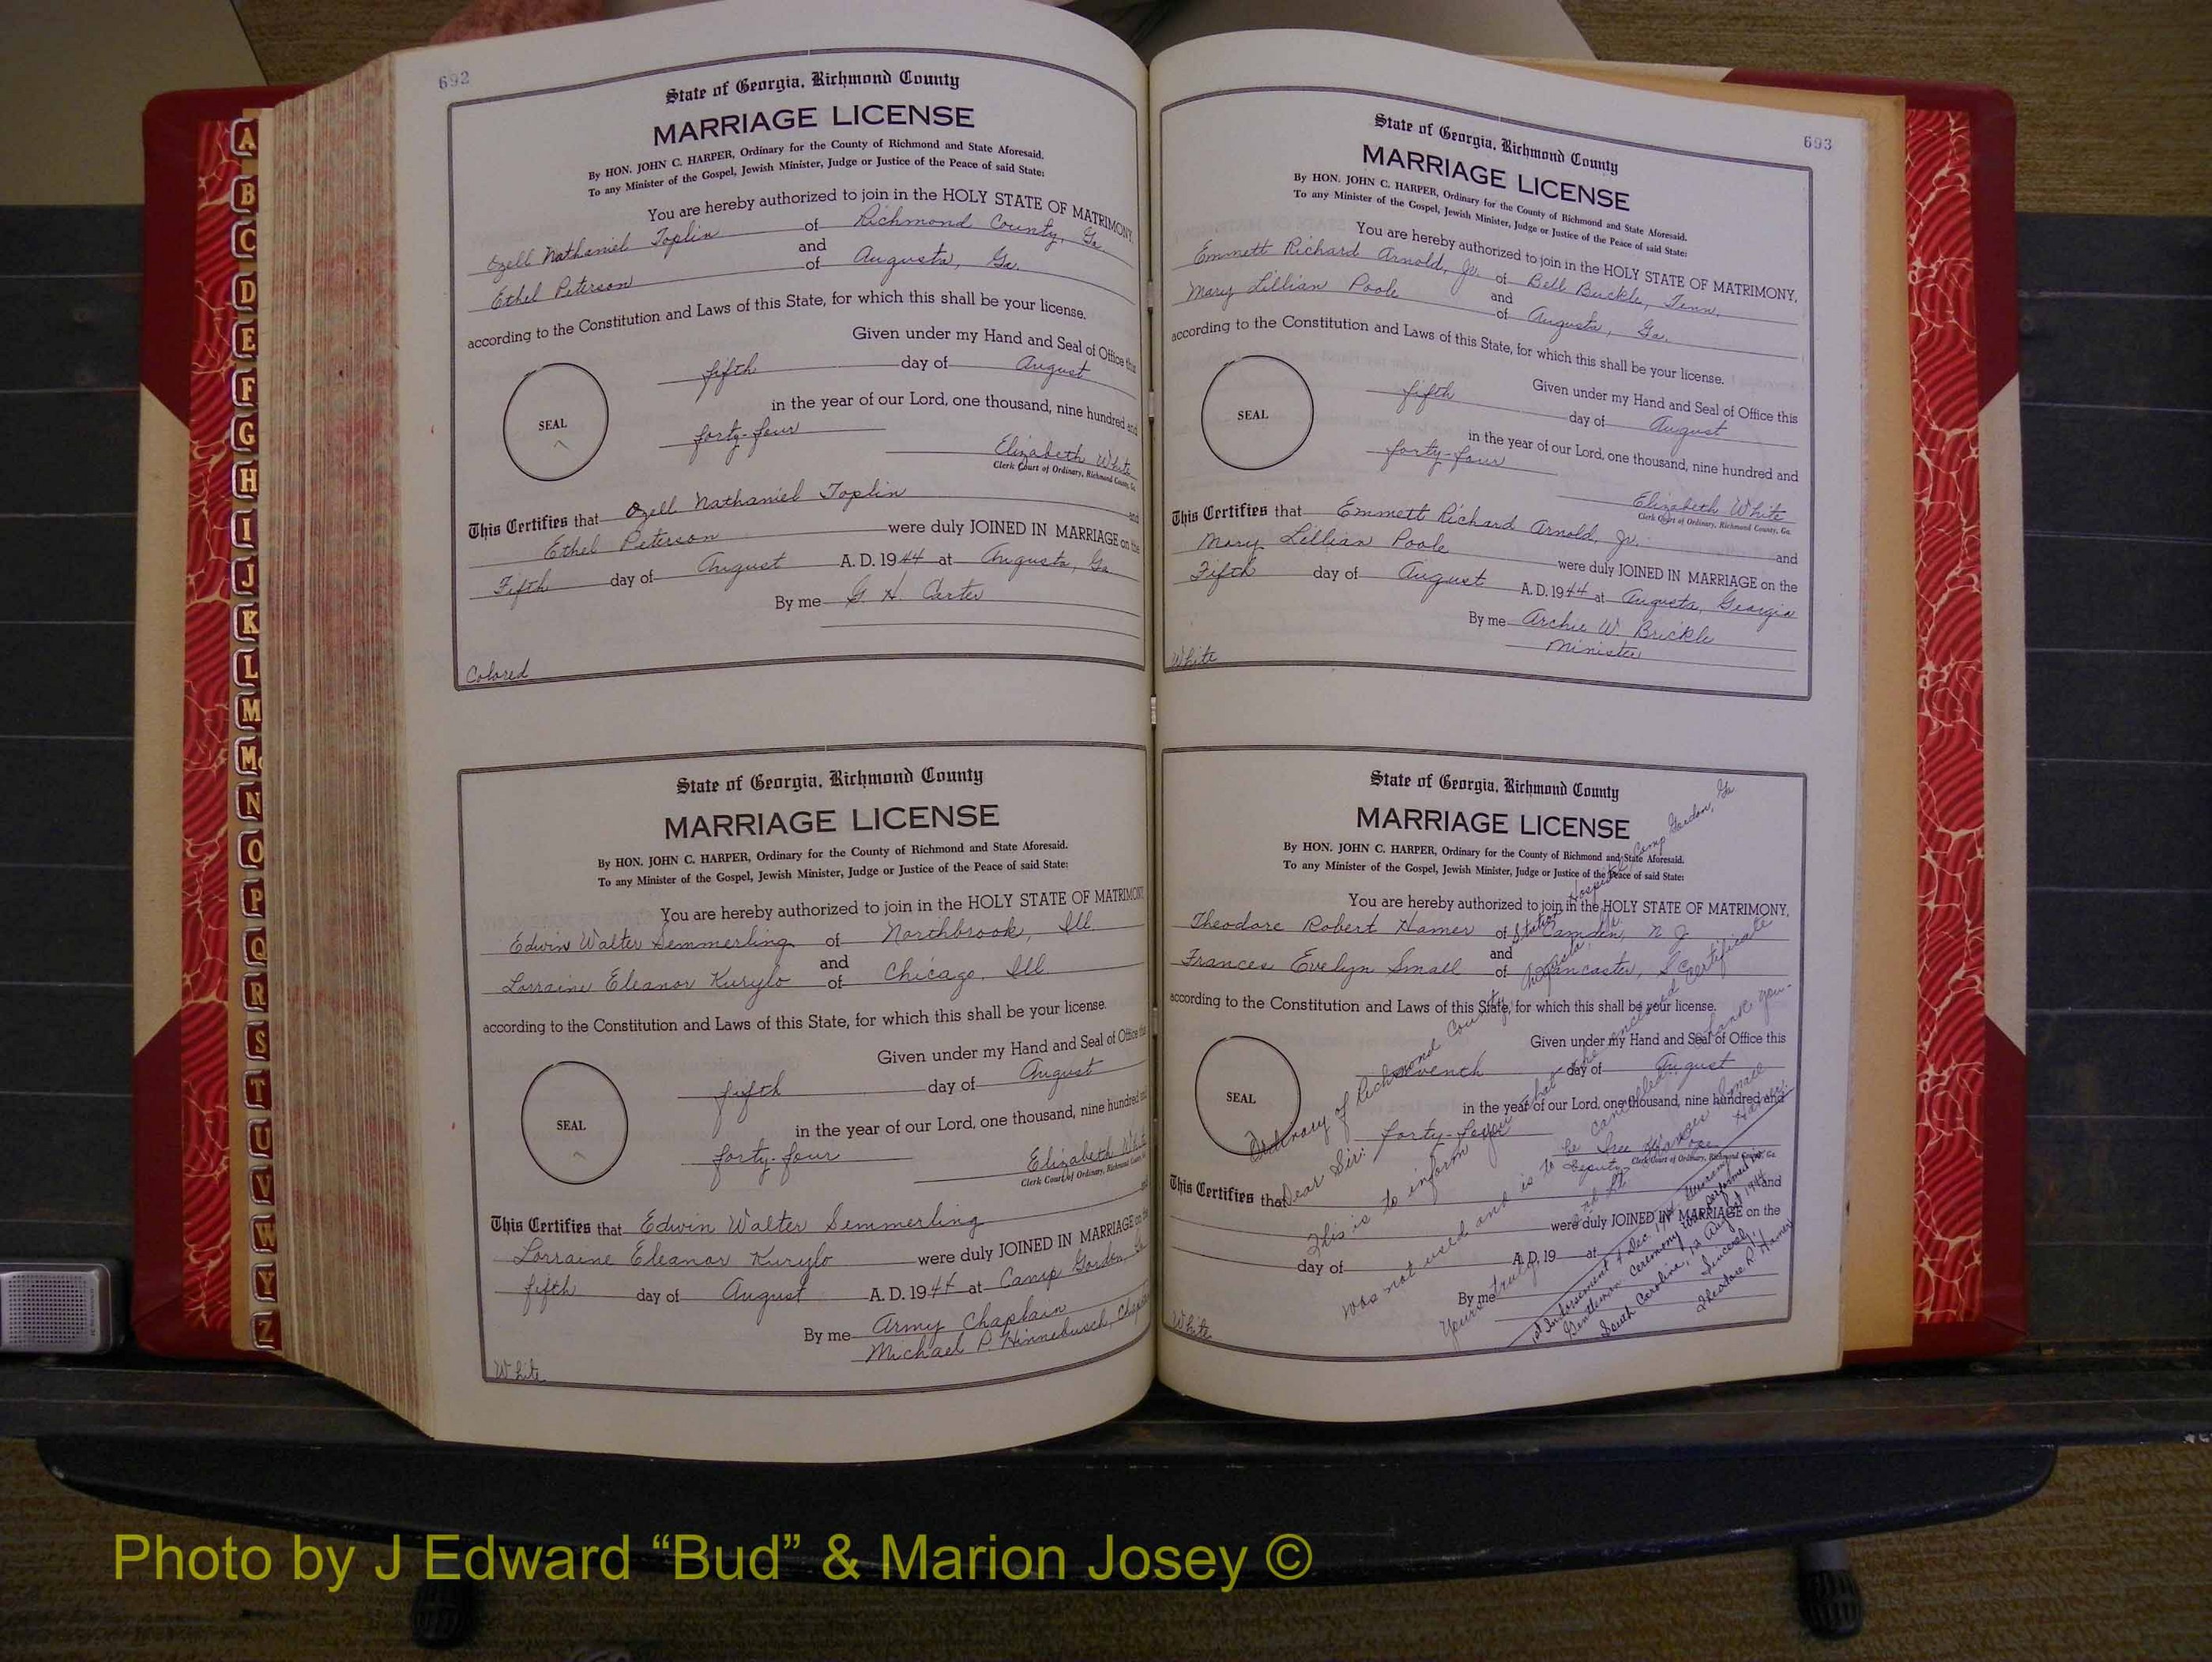 692
State of Georgia, Richmond County
MARRIAGE LICENSE
By HON. JOHN C. HARPER, Ordinary for the County of Richmond and State Aforesaid.
To any Minister of the Gospel, Jewish Minister, Judge or Justice of the Peace of said State:
You are hereby authorized to join in the HOLY STATE OF MATRIMONY,
Ozell Nathaniel Toplin of Richmond County, Ga
and
Ethel Peterson of Augusta, Ga.
according to the Constitution and Laws of this State, for which this shall be your license.
Given under my Hand and Seal of Office this
SEAL
fifth day of August
in the year of our Lord, one thousand, nine hundred and
forty-four
Elizabeth White
Clerk Court of Ordinary, Richmond County, Ga.
This Certifies that Ozell Nathaniel Toplin and
Ethel Peterson were duly JOINED IN MARRIAGE on the
Fifth day of August A. D. 1944 at Augusta, Ga.
By me G. H. Carter
Colored
State of Georgia, Richmond County
MARRIAGE LICENSE
By HON. JOHN C. HARPER, Ordinary for the County of Richmond and State Aforesaid.
To any Minister of the Gospel, Jewish Minister, Judge or Justice of the Peace of said State:
You are hereby authorized to join in the HOLY STATE OF MATRIMONY
Edwin Walter Semmerling of Northbrook, Ill.
and
Lorraine Eleanor Kurylo of Chicago, Ill.
according to the Constitution and Laws of this State, for which this shall be your license.
Given under my Hand and Seal of Office this
SEAL
fifth day of August
in the year of our Lord, one thousand, nine hundred and
forty-four
Elizabeth White
Clerk Court of Ordinary, Richmond County, Ga.
This Certifies that Edwin Walter Semmerling and
Lorraine Eleanor Kurylo were duly JOINED IN MARRIAGE on the
fifth day of August A. D. 1944 at Camp Gordon, Ga
By me Army Chaplain
Michael P. Hinnebusch, Chaplain
White
693
State of Georgia, Richmond County
MARRIAGE LICENSE
By HON. JOHN C. HARPER, Ordinary for the County of Richmond and State Aforesaid.
To any Minister of the Gospel, Jewish Minister, Judge or Justice of the Peace of said State:
You are hereby authorized to join in the HOLY STATE OF MATRIMONY,
Emmett Richard Arnold, Jr. of Bell Buckle, Tenn.
and
Mary Lillian Poole of Augusta, Ga.
according to the Constitution and Laws of this State, for which this shall be your license.
Given under my Hand and Seal of Office this
SEAL
fifth day of August
in the year of our Lord, one thousand, nine hundred and
forty-four
Elizabeth White
Clerk Court of Ordinary, Richmond County, Ga.
This Certifies that Emmett Richard Arnold, Jr. and
Mary Lillian Poole were duly JOINED IN MARRIAGE on the
Fifth day of August A. D. 1944 at Augusta, Georgia
By me Archie W. Brickle
Minister
White
State of Georgia, Richmond County
MARRIAGE LICENSE
By HON. JOHN C. HARPER, Ordinary for the County of Richmond and State Aforesaid.
To any Minister of the Gospel, Jewish Minister, Judge or Justice of the Peace of said State:
You are hereby authorized to join in the HOLY STATE OF MATRIMONY,
Theodore Robert Hamer of Camden, N J
and
Frances Evelyn Small of Lancaster, S C
according to the Constitution and Laws of this State, for which this shall be your license.
Given under my Hand and Seal of Office this
SEAL
seventh day of August
in the year of our Lord, one thousand, nine hundred and
forty-four
Deputy Clerk Court of Ordinary, Richmond County, Ga.
This Certifies that and
were duly JOINED IN MARRIAGE on the
day of A. D. 19 at
By me
White
Station Hospital Camp Gordon, Ga
Ordinary of Richmond County, Augusta, Ga.
Dear Sir:
This is to inform you that the enclosed certificate
was not used and is to be cancelled. Thank you-
Yours truly
2nd Lt.
Frances Small Hamer
1st Indorsement 4 Dec. 1944
Gentlemen: Ceremony was performed in
South Carolina, 12 August 1944
Sincerely,
Theodore R. Hamer
A
B
C
D
E
F
G
H
I
J
K
L
M
Mc
N
O
P
Q
R
S
T
U
V
W
Y
Z
Photo by J Edward “Bud” & Marion Josey ©